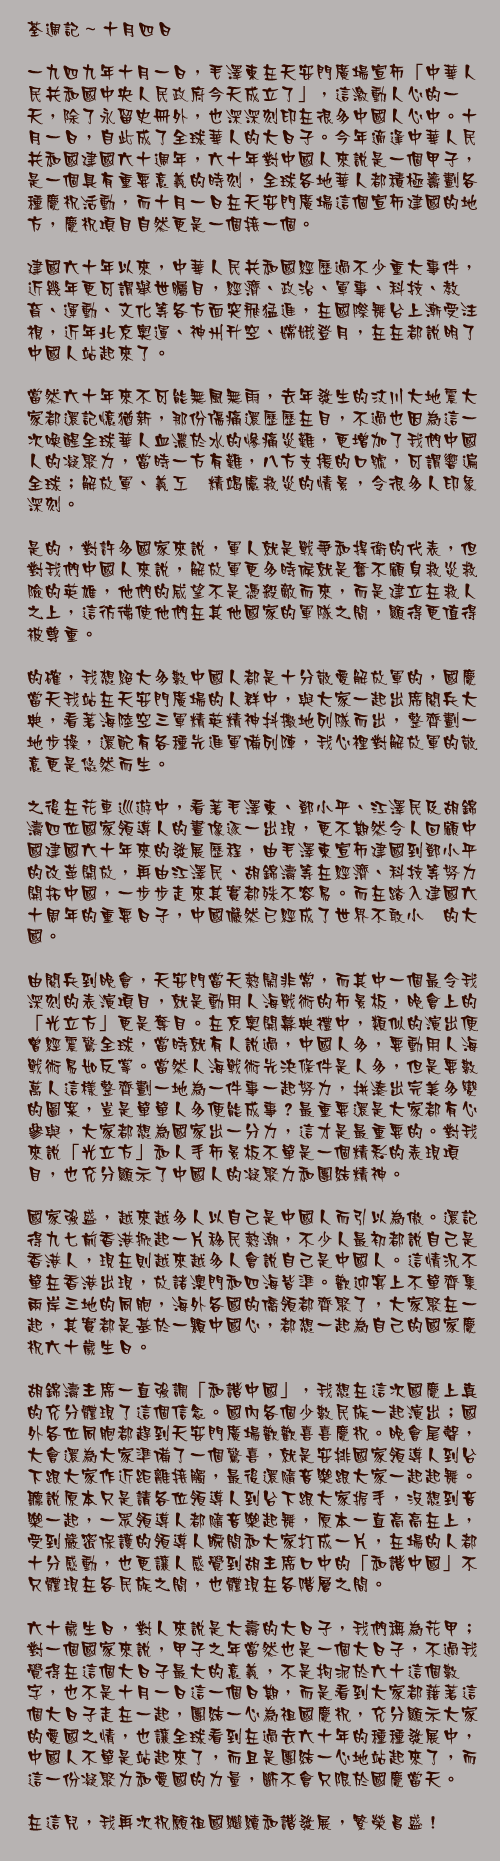 荃週記～十月四日
一九四九年十月一日，毛澤東在天安門廣場宣布「中華人
民共和國中央人民政府今天成立了」，這激動人心的一
天，除了永留史冊外，也深深刻印在很多中國人心中。十
月一日，自此成了全球華人的大日子。今年適逢中華人民
共和國建國六十週年，六十年對中國人來說是一個甲子，
是一個具有重要意義的時刻，全球各地華人都積極籌劃各
種慶祝活動，而十月一日在天安門廣場這個宣布建國的地
方，慶祝項目自然更是一個接一個。
建國六十年以來，中華人民共和國經歷過不少重大事件，
近幾年更可謂舉世矚目，經濟、政治、軍事、科技、教
育、運動、文化等各方面突飛猛進，在國際舞台上漸受注
視，近年北京奧運、神州升空、嫦娥登月，在在都說明了
中國人站起來了。
當然六十年來不可能無風無雨，去年發生的汶川大地震大
家都還記憶猶新，那份傷痛還歷歷在目，不過也因為這一
次喚醒全球華人血濃於水的慘痛災難，更增加了我們中國
人的凝聚力，當時一方有難，八方支援的口號，可謂響遍
全球；解放軍、義工　精竭慮救災的情景，令很多人印象
深刻。
是的，對許多國家來說，軍人就是戰爭和捍衛的代表，但
對我們中國人來說，解放軍更多時候就是奮不顧身救災救
險的英雄，他們的威望不是憑殺敵而來，而是建立在救人
之上，這彷彿使他們在其他國家的軍隊之間，顯得更值得
被尊重。
的確，我想絕大多數中國人都是十分敬愛解放軍的，國慶
當天我站在天安門廣場的人群中，與大家一起出席閱兵大
典，看著海陸空三軍精英精神抖擻地列隊而出，整齊劃一
地步操，還配有各種先進軍備列陣，我心裡對解放軍的敬
意更是悠然而生。
之後在花車巡遊中，看著毛澤東、鄧小平、江澤民及胡錦
濤四位國家領導人的畫像逐一出現，更不期然令人回顧中
國建國六十年來的發展歷程，由毛澤東宣布建國到鄧小平
的改革開放，再由江澤民、胡錦濤等在經濟、科技等努力
開拓中國，一步步走來其實都殊不容易。而在踏入建國六
十周年的重要日子，中國儼然已經成了世界不敢小　的大
國。
由閱兵到晚會，天安門當天熱鬧非常，而其中一個最令我
深刻的表演項目，就是動用人海戰術的布景板，晚會上的
「光立方」更是奪目。在京奧開幕典禮中，類似的演出便
曾經震驚全球，當時就有人說過，中國人多，要動用人海
戰術易如反掌。當然人海戰術先決條件是人多，但是要數
萬人這樣整齊劃一地為一件事一起努力，拼湊出完美多變
的圖案，豈是單單人多便能成事？最重要還是大家都有心
參與，大家都想為國家出一分力，這才是最重要的。對我
來說「光立方」和人手布景板不單是一個精彩的表現項
目，也充分顯示了中國人的凝聚力和團結精神。
國家強盛，越來越多人以自己是中國人而引以為傲。還記
得九七前香港掀起一片移民熱潮，不少人最初都說自己是
香港人，現在則越來越多人會說自己是中國人。這情況不
單在香港出現，放諸澳門和四海皆準。歡迎宴上不單齊集
兩岸三地的同胞，海外各國的僑領都齊聚了，大家聚在一
起，其實都是基於一顆中國心，都想一起為自己的國家慶
祝六十歲生日。
胡錦濤主席一直強調「和諧中國」，我想在這次國慶上真
的充分體現了這個信念。國內各個少數民族一起演出；國
外各位同胞都趕到天安門廣場歡歡喜喜慶祝。晚會尾聲，
大會還為大家準備了一個驚喜，就是安排國家領導人到台
下跟大家作近距離接觸，最後還隨音樂跟大家一起起舞。
聽說原本只是請各位領導人到台下跟大家握手，沒想到音
樂一起，一眾領導人都隨音樂起舞，原本一直高高在上，
受到嚴密保護的領導人瞬間和大家打成一片，在場的人都
十分感動，也更讓人感覺到胡主席口中的「和諧中國」不
只體現在各民族之間，也體現在各階層之間。
六十歲生日，對人來說是大壽的大日子，我們稱為花甲；
對一個國家來說，甲子之年當然也是一個大日子，不過我
覺得在這個大日子最大的意義，不是拘泥於六十這個數
字，也不是十月一日這一個日期，而是看到大家都藉著這
個大日子走在一起，團結一心為祖國慶祝，充分顯示大家
的愛國之情，也讓全球看到在過去六十年的種種發展中，
中國人不單是站起來了，而且是團結一心地站起來了，而
這一份凝聚力和愛國的力量，斷不會只限於國慶當天。
在這兒，我再次祝願祖國繼續和諧發展，繁榮昌盛！